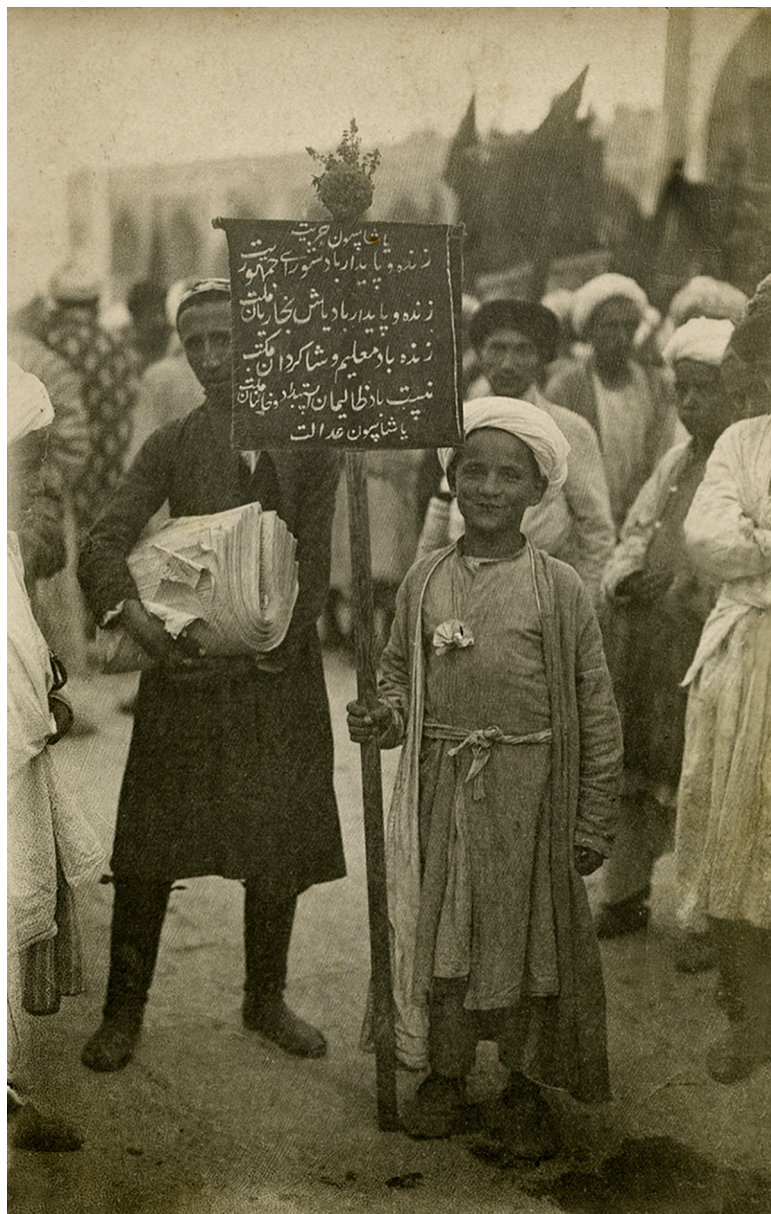 یاشاسون حریت
زنده و پایدار باد شورای جمهوریت
زنده و پایدار باد یاش بخاریان ملت
زنده باد معلیم و شاکردان مکتب
نیست باد ظالیمان استبداد و خائنان ملت
یاشاسون عدالت